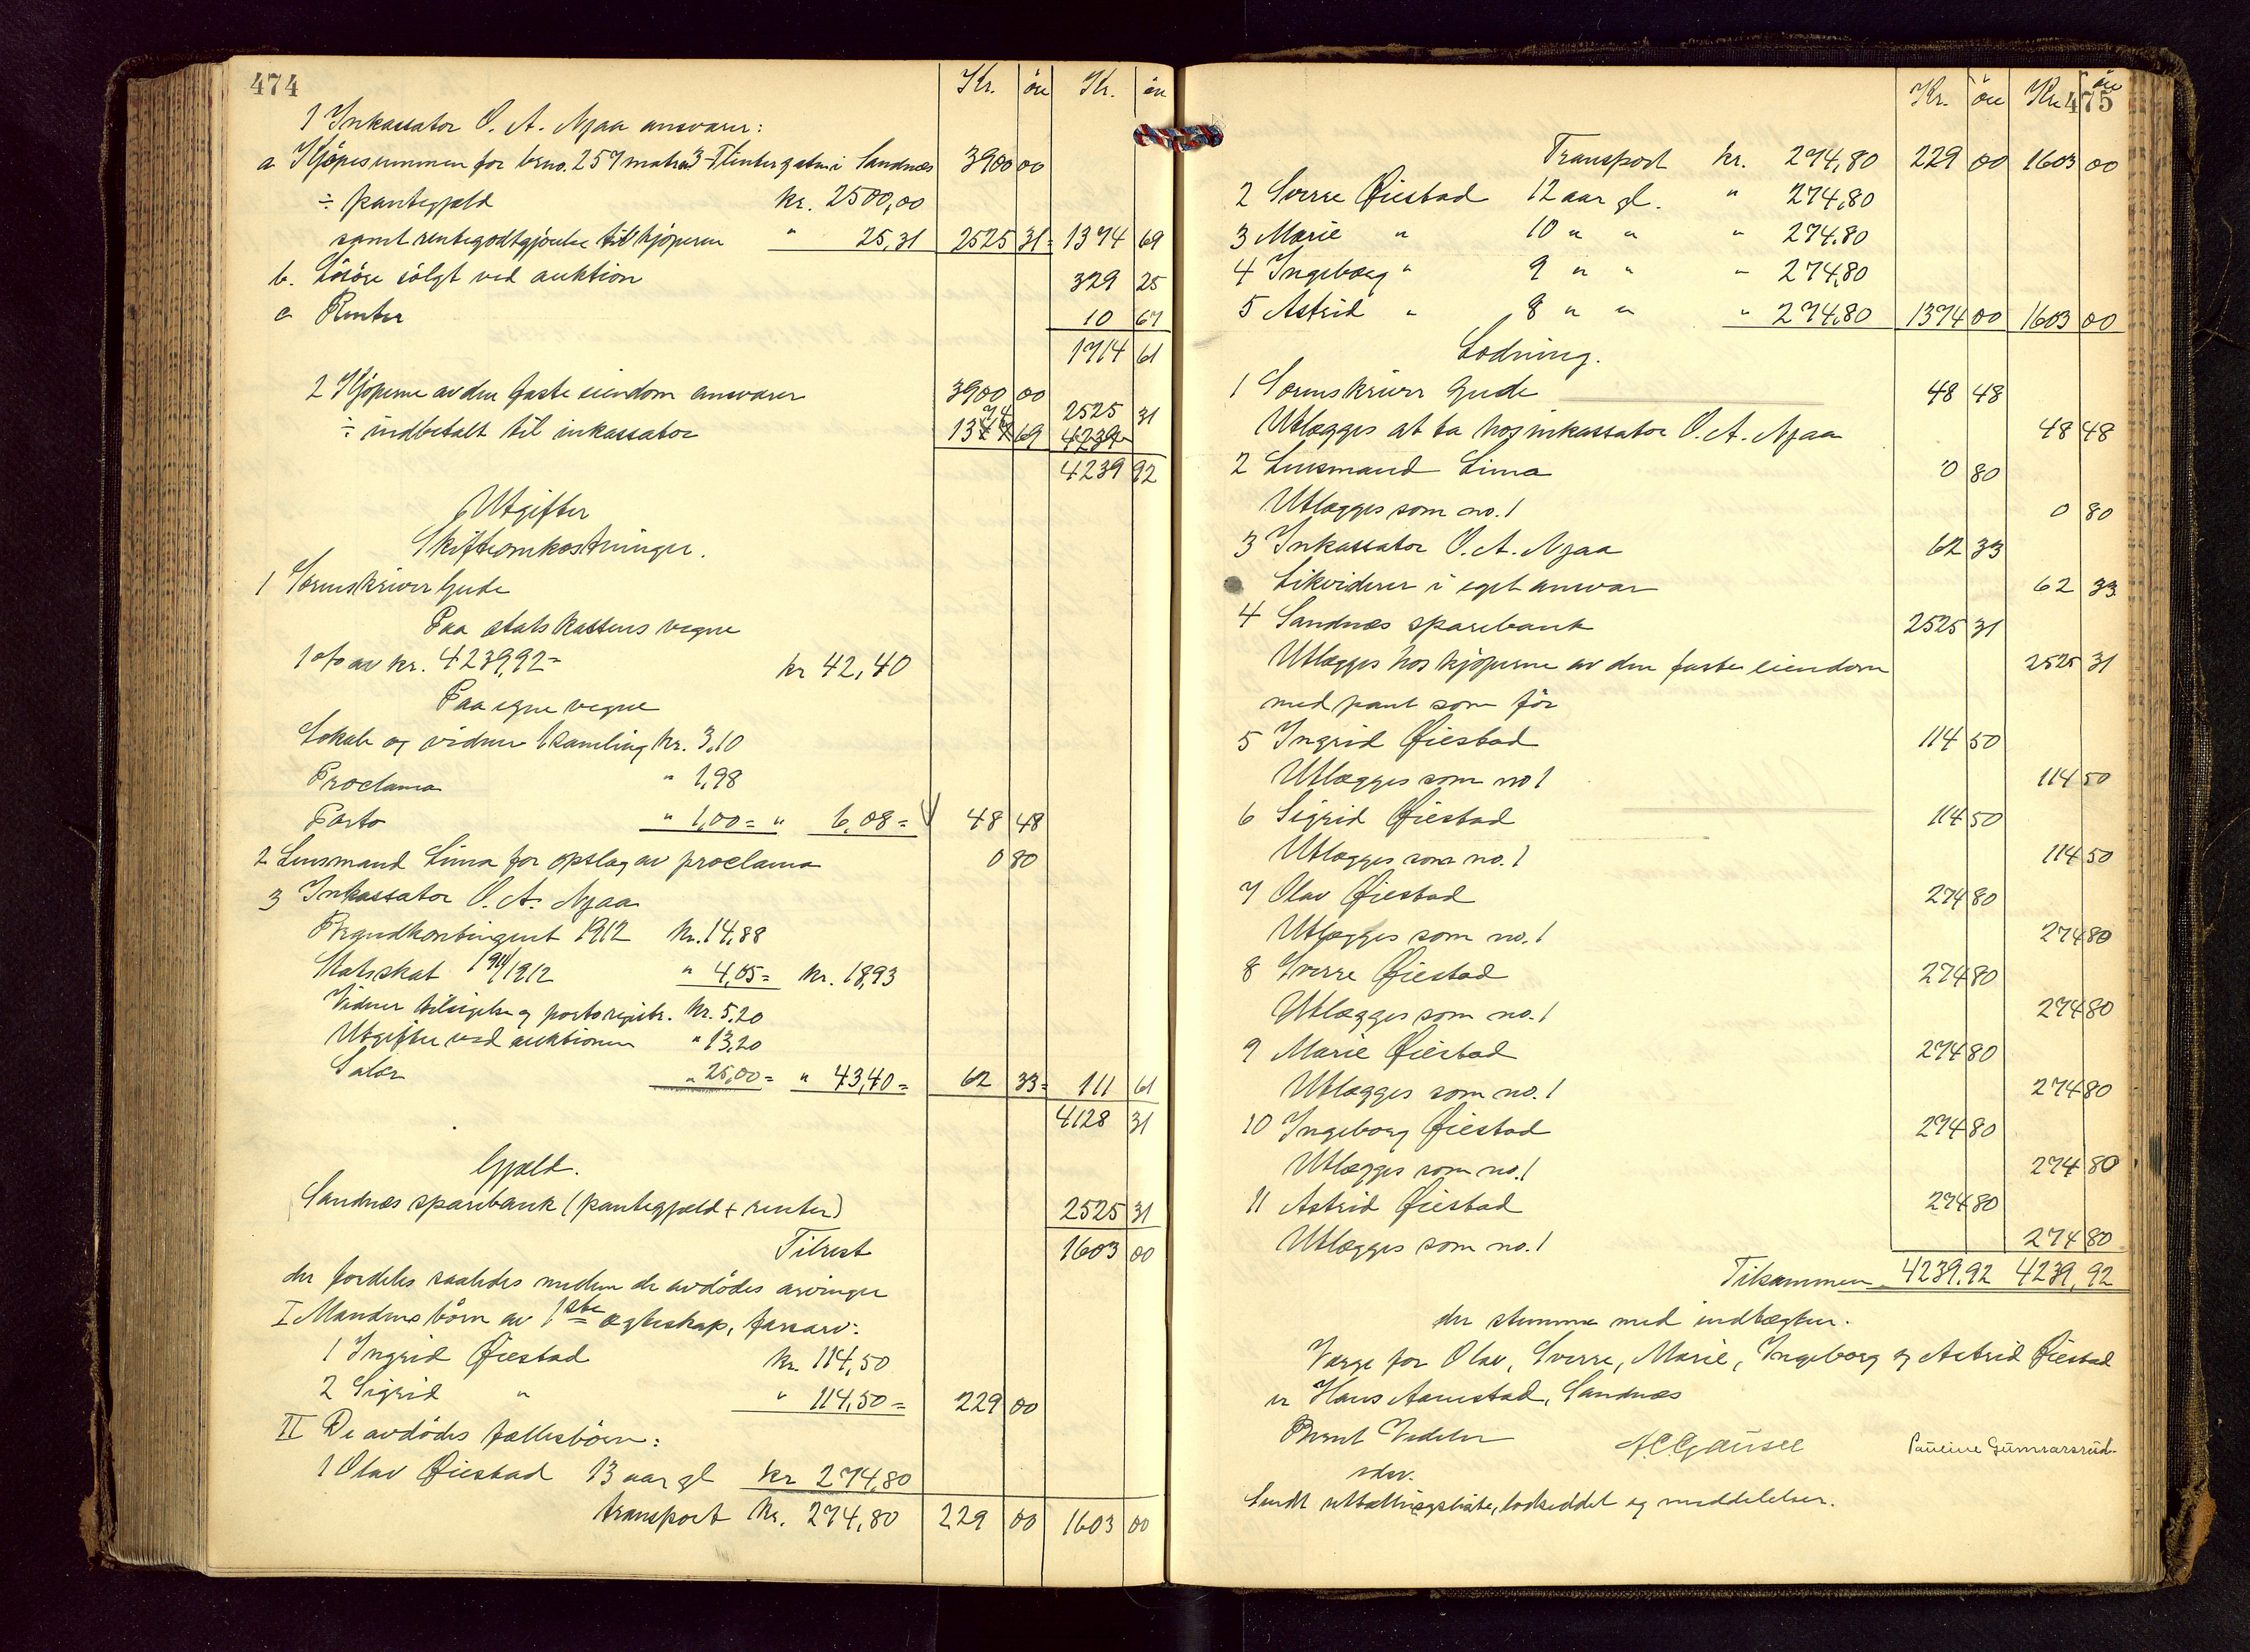 474
Kr. | öre | Kr. | öre
1 Inkassator O. A. Njaa ansvarer:
a Kjöpesummen for brno. 257 matr. i Sandnæs 3900 00
÷ pantegjæld kr. 2500,00
samt rentegodtgjörelse til kjöperen " 25,31 2525 31 = 1374 69
b. Lösöre solgt ved auktion 329 25
c Renter 10 67
1714 61
2 Kjöperne av den faste eiendom ansvarer 3900 00
÷ indbetalt til inkassator 1374 69 2525 31
4239 92
Utgifter
Skifteomkostninger.
1 Sorenskriver Gude
Paa statskassens vegne
1 o/o av kr. 4239,92 = kr 42,40
Paa egne vegne
Lokale og vidner 1 samling kr. 3,10
Proclama " 1,98
Porto " 1,00 = " 6,08 = 48 48
2 Lensmand Lima for opslag av proclama 0 80
3 Inkassator O. A. Njaa
Brandkontingent 1912 kr. 14,88
Statsskat 1911/1912 " 4,05 = kr. 18,93
Vidner tilsigelse og porto registr. kr. 5,20
Utgifter ved auktionen " 13,20
Salær " 25,00 = " 43,40 = 62 33 = 111 61
4128 31
Gjæld.
Sandnæs sparebank (pantegjæld + renter) 2525 31
Tilrest 1603 00
der fordeles saaledes mellem de avdödes arvinger
I Mandens börn av 1ste egteskap, farsarv:
1 Ingrid Öiestad kr. 114,50
2 Sigrid " " 114,50 = 229 00
II De avdödes fællesbörn:
1 Olav Öiestad 13 aar gl kr 274,80
transport kr. 274,80 229 00 1603 00
475
Kr. | öre | Kr. | öre
Transport kr. 274,80 229 00 1603 00
2 Sverre Öiestad 12 aar gl. " 274,80
3 Marie " 10 " " " 274,80
4 Ingeborg " 9 " " " 274,80
5 Astrid " 8 " " " 274,80 1374 00 1603 00
Lodning.
1 Sorenskriver Gude 48 48
Utlægges at ta hos inkassator O. A. Njaa 48 48
2 Lensmand Lima 0 80
Utlægges som no. 1 0 80
3 Inkassator O. A. Njaa 62 33
Likviderer i eget ansvar 62 33
4 Sandnæs sparebank 2525 31
Utlægges hos kjöperne av den faste eiendom 2525 31
med pant som för
5 Ingrid Öiestad 114 50
Utlægges som no 1 114 50
6 Sigrid Öiestad 114 50
Utlægges som no. 1 114 50
7 Olav Öiestad 274 80
Utlægges som no. 1 274 80
8 Sverre Öiestad 274 80
Utlægges som no. 1 274 80
9 Marie Öiestad 274 80
Utlægges som no. 1 274 80
10 Ingeborg Öiestad 274 80
Utlægges som no. 1 274 80
11 Astrid Öiestad 274 80
Utlægges som no. 1 274 80
Tilsammen 4239,92 4239,92
der stemme med indtægten.
Værge for Olav, Sverre, Marie, Ingeborg og Astrid Öiestad
er Hans Aarrestad, Sandnæs
Bernt Vedeler A C Gausel Pauline Gunnarsrud
Sendt utlodningsliste, lodseddel og meddelelser.